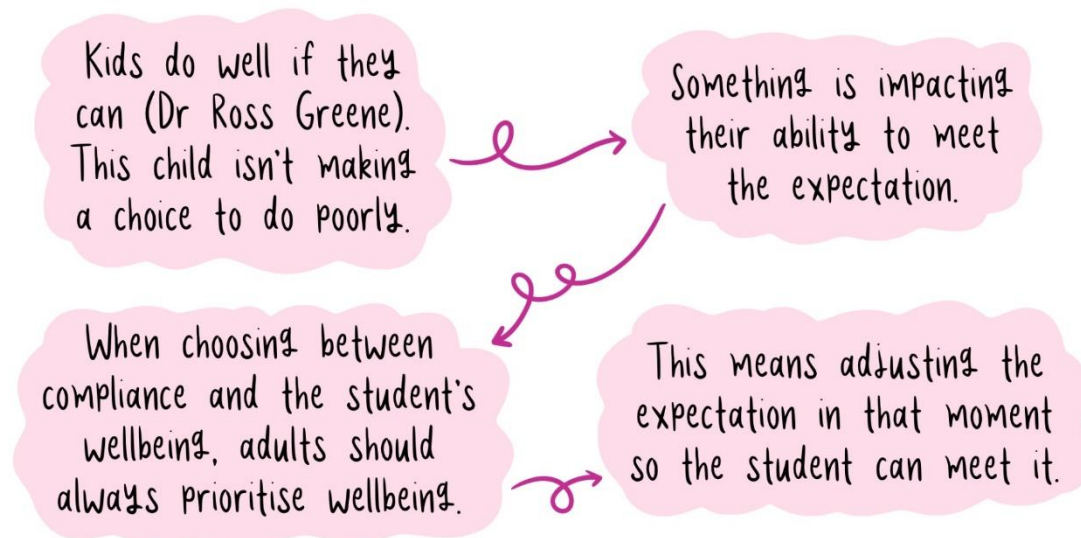 Kids do well if they
can (Dr Ross Greene).
This child isn't making
a choice to do poorly.
Something is impacting
their ability to meet
the expectation.
When choosing between
compliance and the student's
wellbeing, adults should
always prioritise wellbeing.
This means adjusting the
expectation in that moment
so the student can meet it.